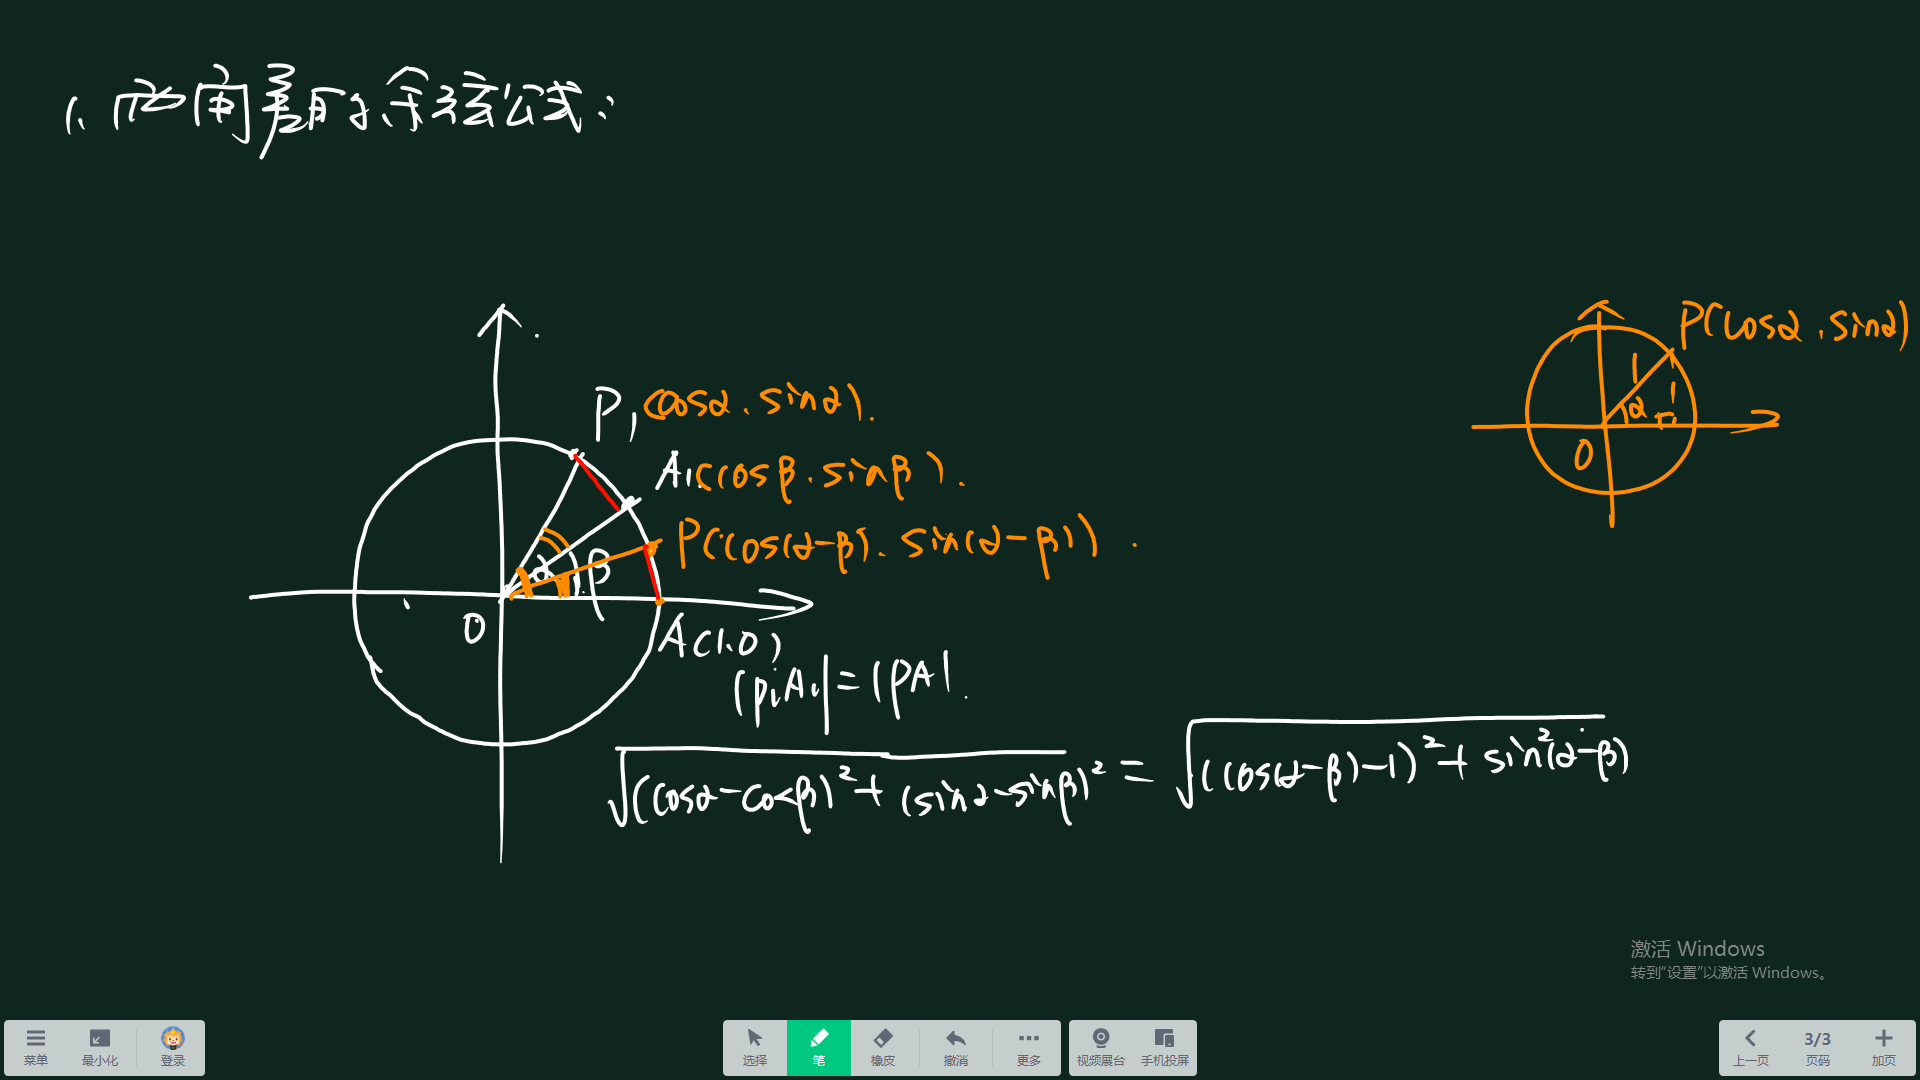 1. 两角差的余弦公式:
P(cosα, sinα)
1
α
O
P₁(cosα, sinα).
A₁(cosβ, sinβ).
P(cos(α-β), sin(α-β)).
α
β
O
A(1,0)
|P₁A₁|=|PA|.
√((cosα-cosβ)²+(sinα-sinβ)²) = √((cos(α-β)-1)²+sin²(α-β))
激活 Windows
转到“设置”以激活 Windows。
菜单 最小化 登录 选择 笔 橡皮 撤消 更多 视频展台 手机投屏 上一页 3/3 页码 加页